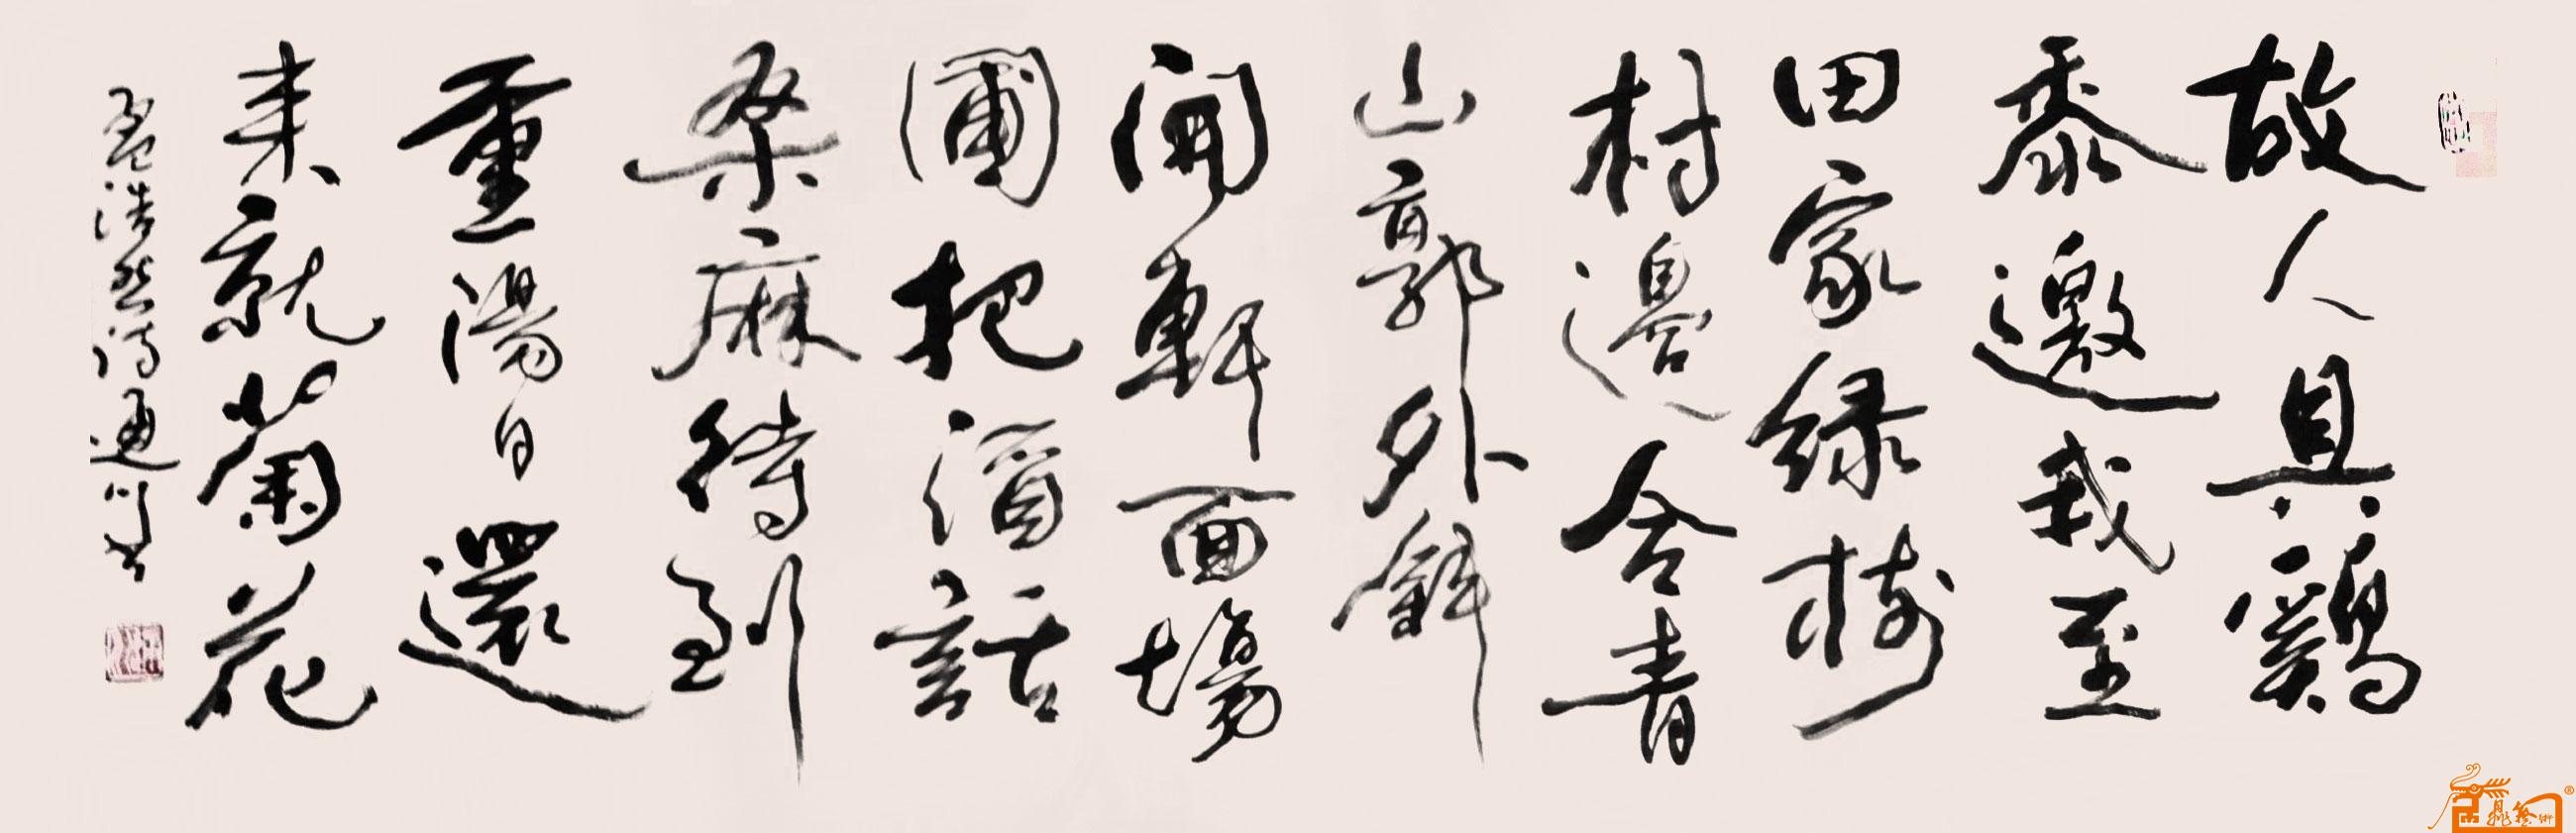 故人具鷄
黍邀我至
田家綠樹
村邊合青
山郭外斜
開軒面場
圃把酒話
桑麻待到
重陽日還
来就菊花
孟浩然詩通川書